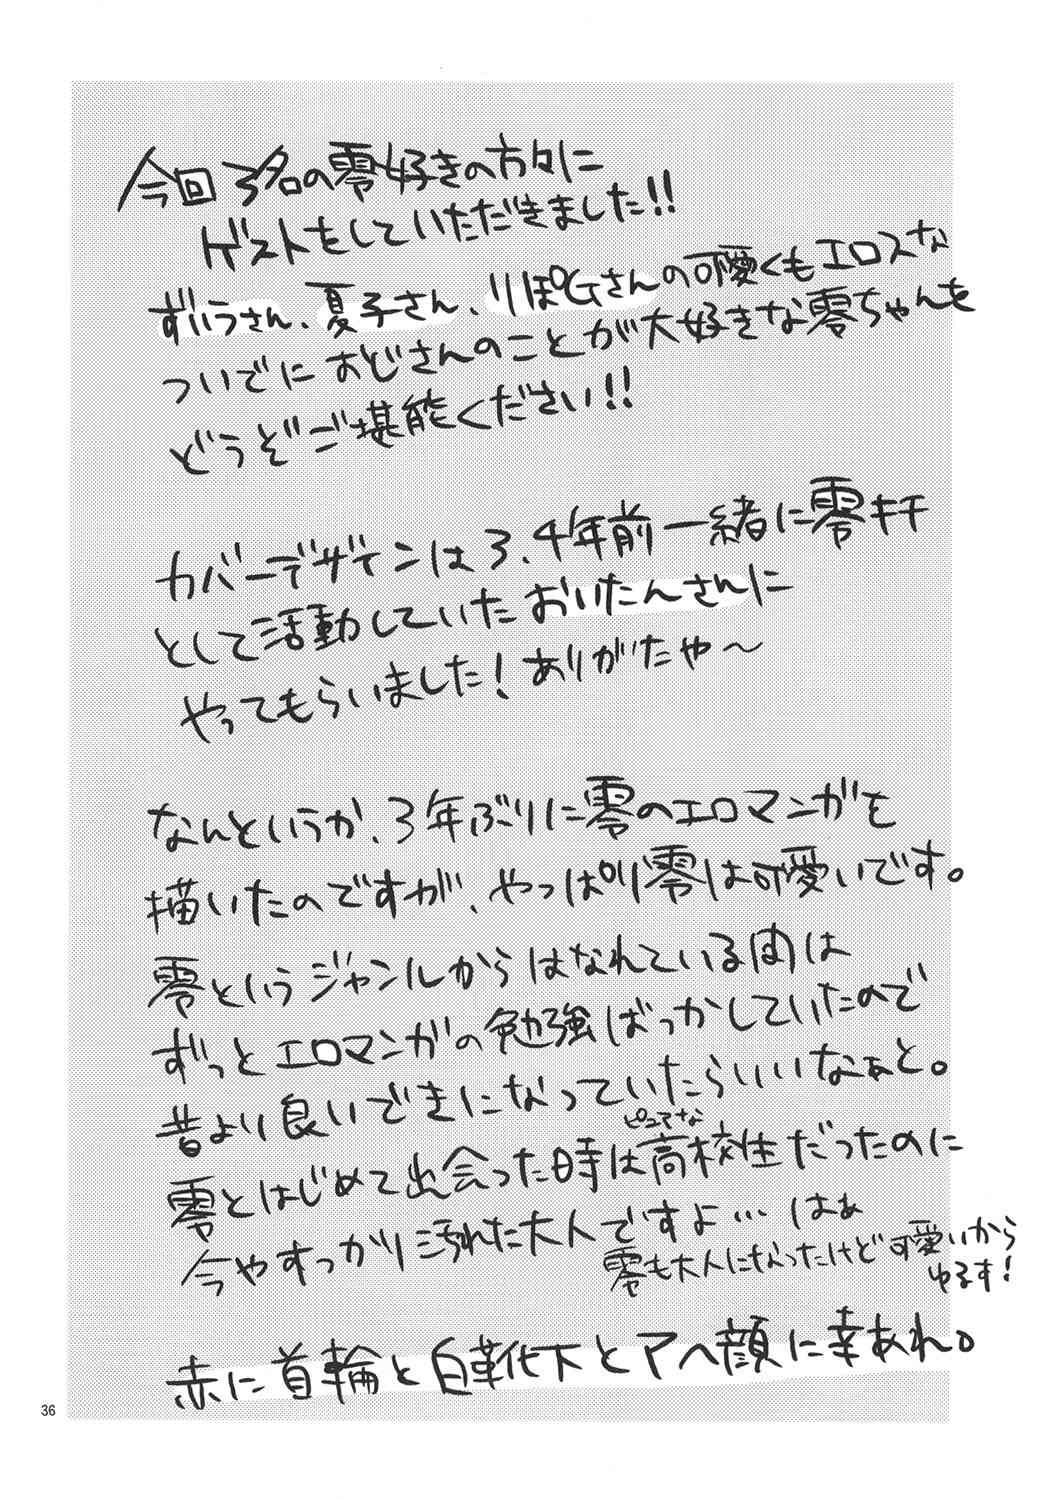 今回3名の零好きの方々に
ゲストをしていただきました!!
ずいうさん、夏子さん、りぽGさんの可愛くもエロスな
ついでにおじさんのことが大好きな零ちゃんを
どうぞご堪能ください!!
カバーデザインは3、4年前一緒に零キチ
として活動していたおいたんさんに
やってもらいました!ありがたや〜
なんというか、3年ぶりに零のエロマンガを
描いたのですが、やっぱり零は可愛いです。
零というジャンルからはなれている間は
ずっとエロマンガの勉強ばっかしていたので
昔より良いできになっていたらいいなぁと。
ピュアな
零とはじめて出会った時は高校生だったのに
今やすっかり汚れた大人ですよ…はぁ
零も大人になったけど可愛いから
ゆるす!
赤に首輪と白革化下とアヘ顔に幸あれ。
36